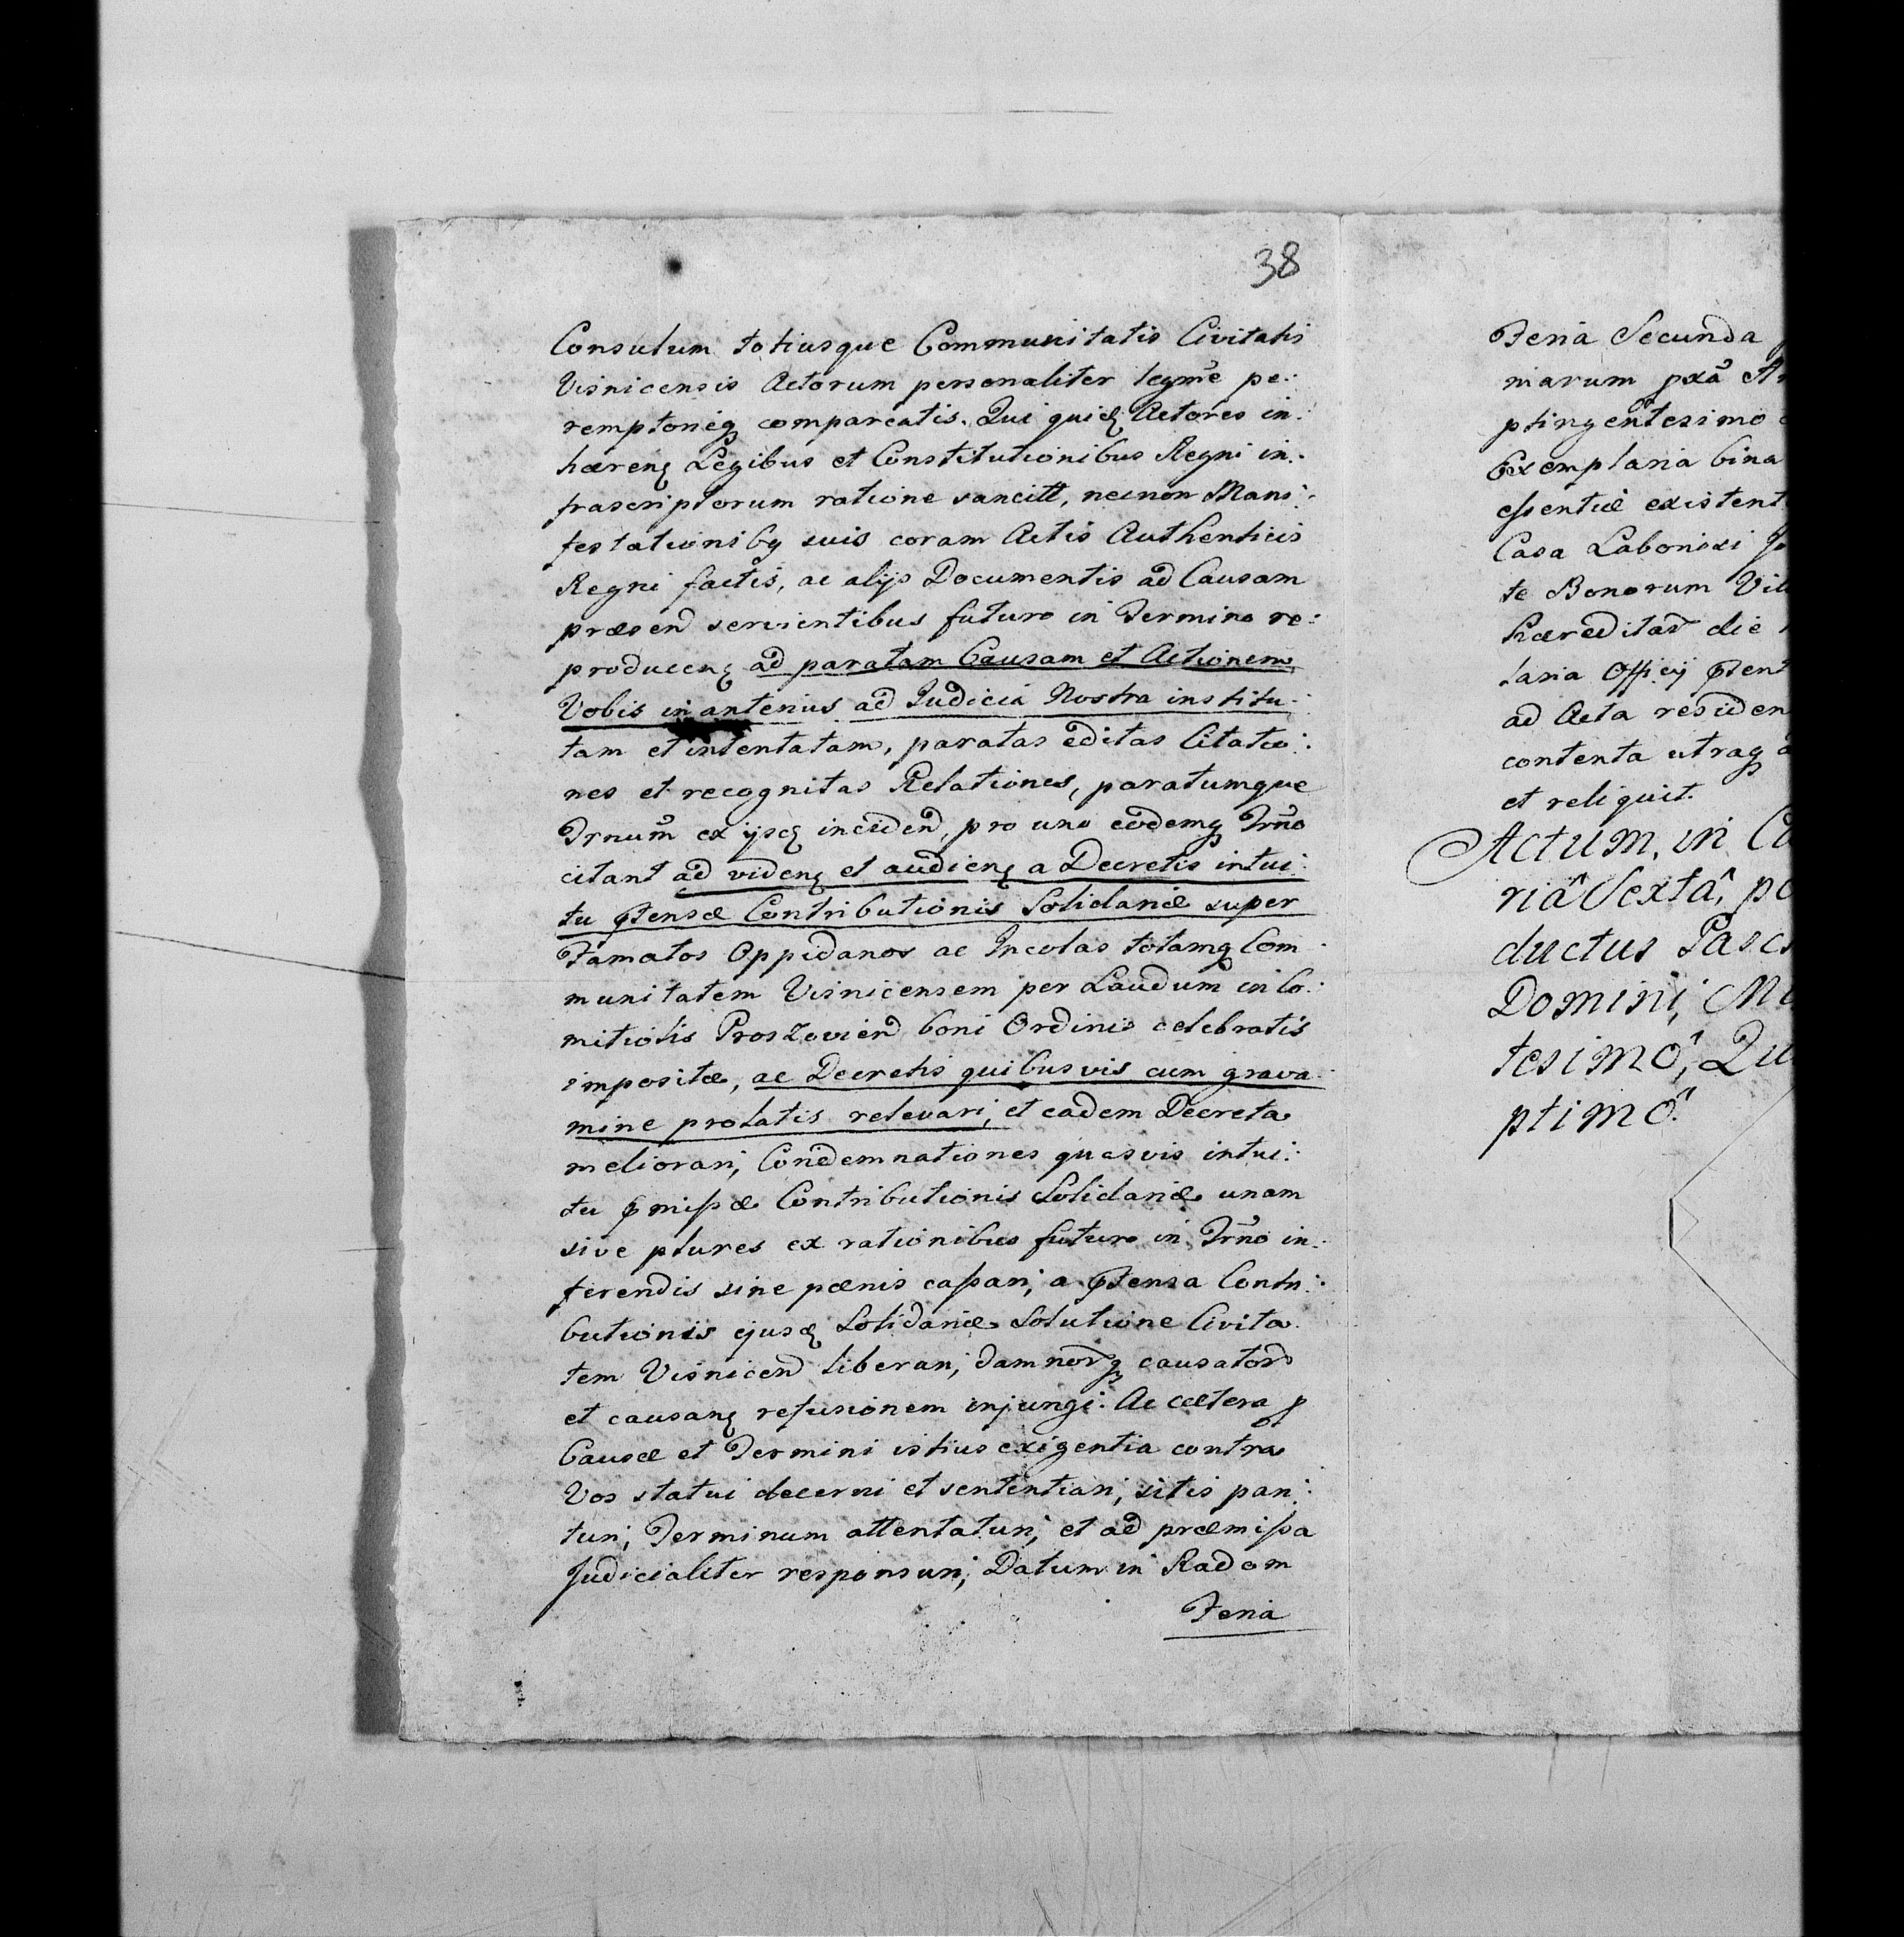 38
Consulum totiusque Communitatis Civitatis
Visnicensis Actorum personaliter legmẽ pe:
remptorieq comparcatis. Qui quidē Actores in:
hærenȩ Legibus et Constitutionibus Regni in:
frascriptorum ratione sancitt, necnon Mani:
festationibq suis coram Actis Authenticis
Regni factis, ac alijs Documentis ad Causam
præsend servientibus futuro in Termino re:
producenȩ ad paratam Causam et Actionem
Vobis in anterius ad Judicia Nostra institu:
tam et intentatam, paratas editas Citatio:
nes et recognitas Relationes, paratumque
Trnum̃ ex ijsȩ inciden̄d, pro uno eodemq Trño
citant ad videnȩ et audienȩ a Decretis intui:
tu ꝓtensæ Contributionis Solidariæ super
Famatos Oppidanos ac Incolas totamq Com:
munitatem Visnicensem per Laudum in Co:
mitiolis Proszoviend boni Ordinis celebratis
impositæ, ac Decretis quibusvis cum grava:
mine prolatis relevari, et eadem Decreta
meliorari, Condemnationes quasvis intui:
tu ꝓmissæ Contributionis Solidariæ unam
sive plures ex rationibus futuro in Trño in:
ferendis sine pænis cassari, a ꝓtensa Contri:
butionis ejusȩ Solidariæ Solutione Civita:
tem Visnicend liberari, damnorq causatord
et causanȩ refusionem injungi. Ac cætera ꝓ
Causæ et Termini istius exigentia contra
Vos statui decerni et sententiari, sitis pari:
turi, Terminum attentaturi, et ad præmissa
Judicialiter responsuri, Datum in Radom
Feria
Feria Secunda
niarum pxã
ptingentesimo
Exemplaria bina
essentiæ existent
Casa Laboriosi
te Bonorum
hæreditard die
laria Officij ꝓtent
ad Acta residen
contenta utraq
et reliquit.
Actum, in
riâ Sextâ, po
ductus Pasc
Domini, M
tesimô, Qu
ptimô.